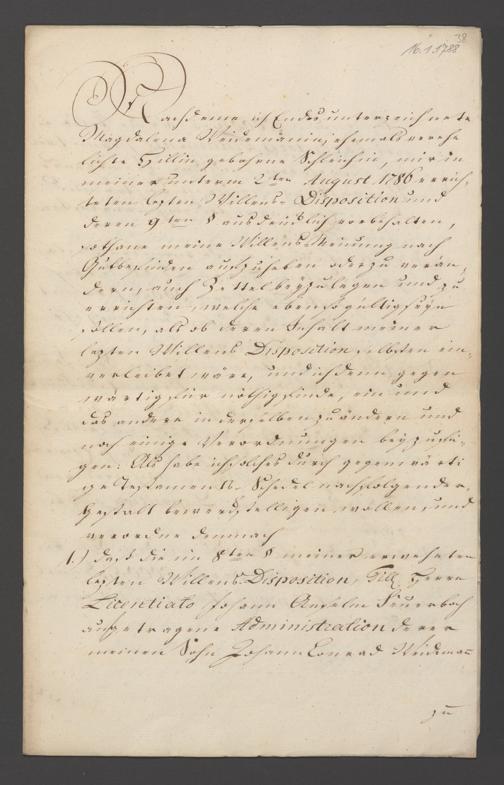 38
No. 1. 1788
Nachdeme ich Endesunterzeichnete
Magdalena Weidemännin, ehemals verehe
lichte Hillin gebohrne Schleichin, mir in
meiner unterm 2ten August 1786 errich
teten lezten Willens-Disposition und
deren 9ten § ausdrücklich vorbehalten,
sothane meine Willens-Meinung nach
Gutbefinden aufzuheben oder zu verän
dern, auch Zettel beyzulegen und zu
errichten, welche eben so gültig seyn
sollen, als ob deren Inhalt meiner
lezten Willens Disposition selbsten ein
verleibet wäre, und ich denn gegen
wärtig für nöthig finde, ein und
das andere in derselben zu ändern und
noch einige Verordnungen beyzufü
gen: Als habe ich solches durch gegenwärti
ge Testaments-Schedel nachfolgender
Gestalt bewerckstelligen wollen, und
verordne demnach
1.) daß die im 8ten § meiner erwehnten
lezten Willens Disposition, Tit. Herrn
Licentiato Johann Anselm Feuerbach
aufgetragene Administration derer
meinen Sohn Johann Conrad Weidemann
zu